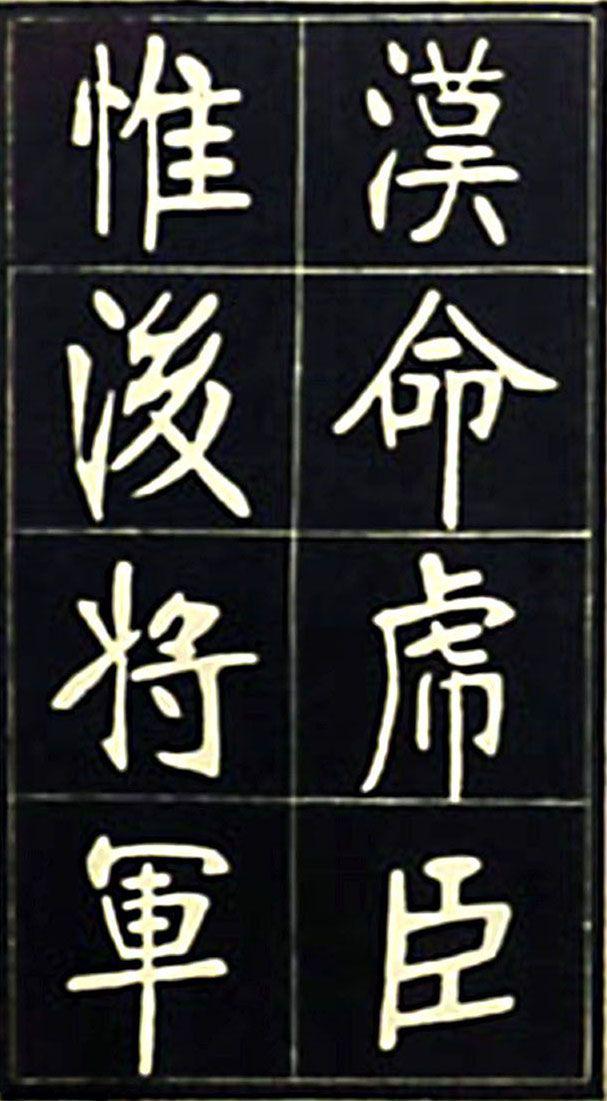 漢命虎臣
惟後将軍